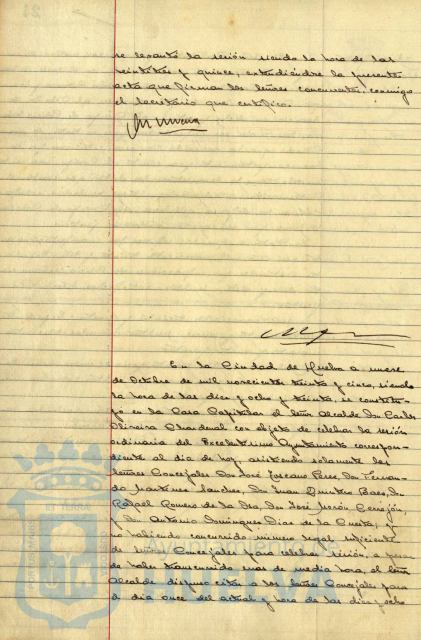 se levantó la sesión siendo la hora de las
veintitres y quince, extendiéndose la presente
acta que firman los señores concurrentes, conmigo
el Secretario que certifico.
En la Ciudad de Huelva a nueve
de Octubre de mil novecientos treinta y cinco, siendo
la hora de las diez y ocho y treinta, se constitu-
yó en la Casa Capitular el Señor Alcalde Don Carlos
Oliveira Chardenal con objeto de celebrar la sesión
ordinaria del Excelentísimo Ayuntamiento correspon-
diente al día de hoy, asistiendo solamente los
señores Concejales Don José Toscano Perez, Don Fernan-
do Martinez Sanchez, Don Juan Quintero Baez, Don
Rafael Romero de la Osa, Don José Morón Cerrejón,
y Don Antonio Dominguez Diaz de la Cuesta, y
no habiendo concurrido número legal suficiente
de Concejales para celebrar sesión, a pesar
de haber transcurrido mas de media hora, el Señor
Alcalde dispuso citar a los Señores Concejales para
el día once del actual y hora de las diez y ocho